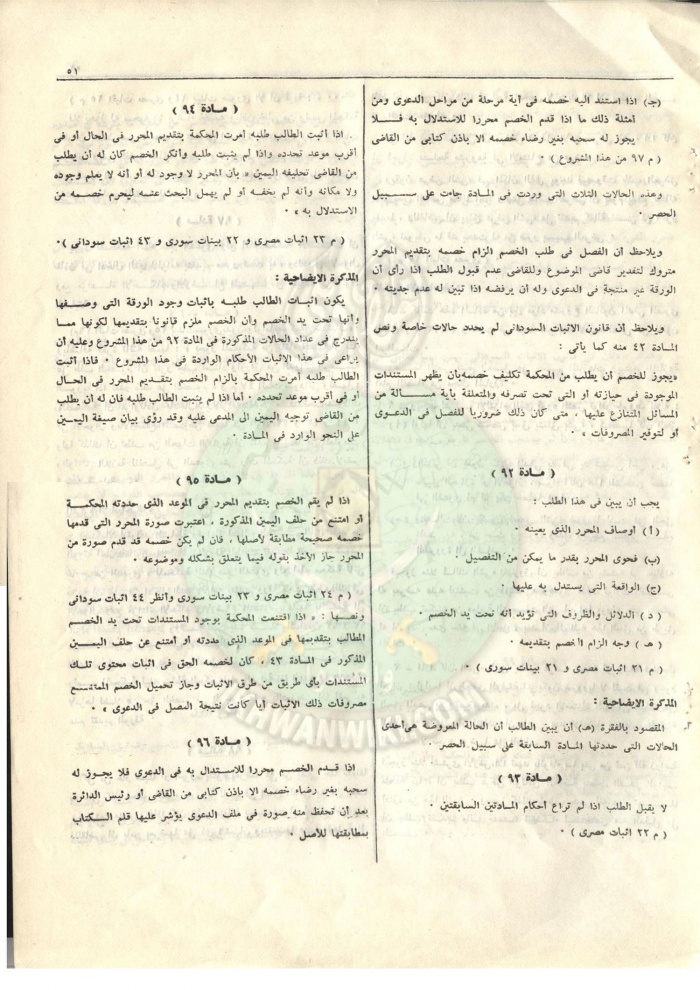 ٥١
(جـ) اذا استند اليه خصمه فى أية مرحلة من مراحل الدعوى ومن
أمثلة ذلك ما اذا قدم الخصم محررا للاستدلال به فـلا
يجوز له سحبه بغير رضاء خصمه الا باذن كتابى من القاضى
( م ٩٧ من هذا المشروع ) ٠
وهذه الحالات الثلاث التى وردت فى المادة جاءت على سـبيل
الحصر ٠
ويلاحظ أن الفصل فى طلب الخصم الزام خصمه بتقديم المحرر
متروك لتقدير قاضى الموضوع وللقاضى عدم قبول الطلب اذا رأى أن
الورقة غير منتجة فى الدعوى وله أن يرفضه اذا تبين له عدم جديته ٠
ويلاحظ أن قانون الاثبات السودانى لم يحدد حالات خاصة ونص
المادة ٤٣ منه كما يأتى :
«يجوز للخصم أن يطلب من المحكمة تكليف خصمه بأن يظهر المستندات
الموجودة فى حيازته أو التى تحت تصرفه والمتعلقة بأية مسـألة من
المسائل المتنازع عليها ، متى كان ذلك ضروريا للفصل فى الدعـوى
أو لتوفير المصروفات » ٠
( مـادة ٩٢ )
يجب أن يبين فى هذا الطلب :
( أ ) أوصاف المحرر الذى يعينه ٠
(ب) فحوى المحرر بقدر ما يمكن من التفصيل ٠
(ج) الواقعة التى يستدل به عليها ٠
( د ) الدلائل والظروف التى تؤيد أنه تحت يد الخصم ٠
( هـ ) وجه الزام الخصم بتقديمه ٠
( م ٢١ اثبات مصرى و ٢١ بينات سورى ) ٠
المذكرة الايضاحية :
المقصود بالفقرة (هـ) أن يبين الطالب أن الحالة المعروضة هى أحدى
الحالات التى حددتها المادة السابقة على سبيل الحصر ٠
( مـادة ٩٣ )
لا يقبل الطلب اذا لم تراع أحكام المـادتين السابقتين ٠
( م ٢٢ اثبات مصرى ) ٠
( مـادة ٩٤ )
اذا أثبت الطالب طلبه أمرت المحكمة بتقديم المحرر فى الحال أو فى
أقرب موعد تحدده واذا لم يثبت طلبه وأنكر الخصم كان له أن يطلب
من القاضى تحليفه اليمين « بأن المحرر لا وجود له أو أنه لا يعلم وجوده
ولا مكانه وأنه لم يخفه أو لم يهمل البحث عنـه ليحرم خصمـه من
الاستدلال به » ٠
( م ٢٣ اثبات مصرى و ٢٢ بينات سورى و ٤٣ اثبات سودانى ) ٠
المذكرة الايضاحية :
يكون اثبـات الطالب طلبـه باثبات وجود الورقة التى وصـفها
وأنها تحت يد الخصم وأن الخصم ملزم قانونا بتقديمها لكونها ممـا
يندرج فى عداد الحالات المذكورة فى المادة ٩٢ من هذا المشروع وعليه أن
يراعى فى هذا الاثبات الأحكام الواردة فى هذا المشروع ٠ فاذا أثبت
الطالب طلبه أمرت المحكمة بالزام الخصم بتقـديم المحرر فى الحـال
أو فى أقرب موعد تحدده ٠ أما اذا لم يثبت الطالب طلبه فان له أن يطلب
من القاضى توجيه اليمين الى المدعى عليه وقد رؤى بيان صيغة اليمـين
على النحو الوارد فى المادة ٠
( مـادة ٩٥ )
اذا لم يقم الخصم بتقديم المحرر فى الموعد الذى حددته المحكمـة
أو امتنع من حلف اليمين المذكورة ، اعتبرت صورة المحرر التى قدمها
خصمه صحيحة مطابقة لأصلها ، فان لم يكن خصمه قد قدم صورة من
المحرر جاز الأخذ بقوله فيما يتعلق بشكله وموضوعه ٠
( م ٢٤ اثبات مصرى و ٢٣ بينات سورى وأنظر ٤٤ اثبات سودانى
ونصهـا : « اذا اقتنعت المحكمة بوجود المستندات تحت يد الخصـم
المطالب بتقديمها فى الموعد الذى حددته أو أمتنع عن حلف اليمـين
المذكور فى المادة ٤٣ ، كان لخصمه الحق فى اثبات محتوى تلـك
المستندات بأى طريق من طرق الاثبات وجاز تحميل الخصم الممتنـع
مصروفات ذلك الاثبات أيا كانت نتيجة الفصل فى الدعوى » ٠
( مـادة ٩٦ )
اذا قدم الخصم محررا للاستدلال به فى الدعوى فلا يجوز له
سحبه بغير رضاء خصمه الا باذن كتابى من القاضى أو رئيس الدائرة
بعد أن تحفظ منه صورة فى ملف الدعوى يؤشر عليها قلم الـكتاب
بمطابقتها للأصل ٠